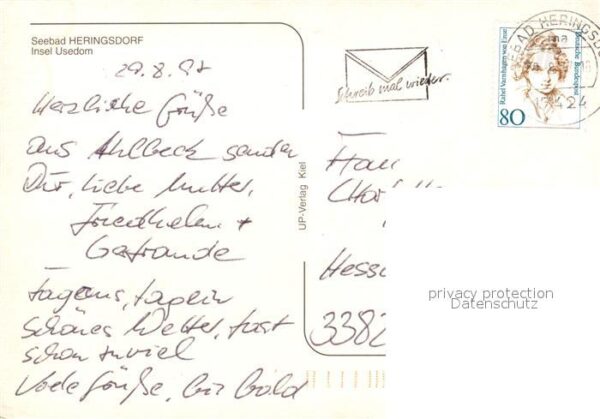 Seebad HERINGSDORF
Insel Usedom
29.8.97
Herzliche Grüße
aus Ahlbeck senden
Dir, liebe Mutter,
Friedhelm +
Gertraude
Tagaus, tagein
schönes Wetter, fast
schon zuviel
Viele Grüße, bis bald
UP-Verlag Kiel
Schreib mal wieder.
SEEBAD HERINGSDO
17424
Rahel Varnhagen von Ense
Deutsche Bundespost
80
Frau
Hessi
3382
privacy protection
Datenschutz